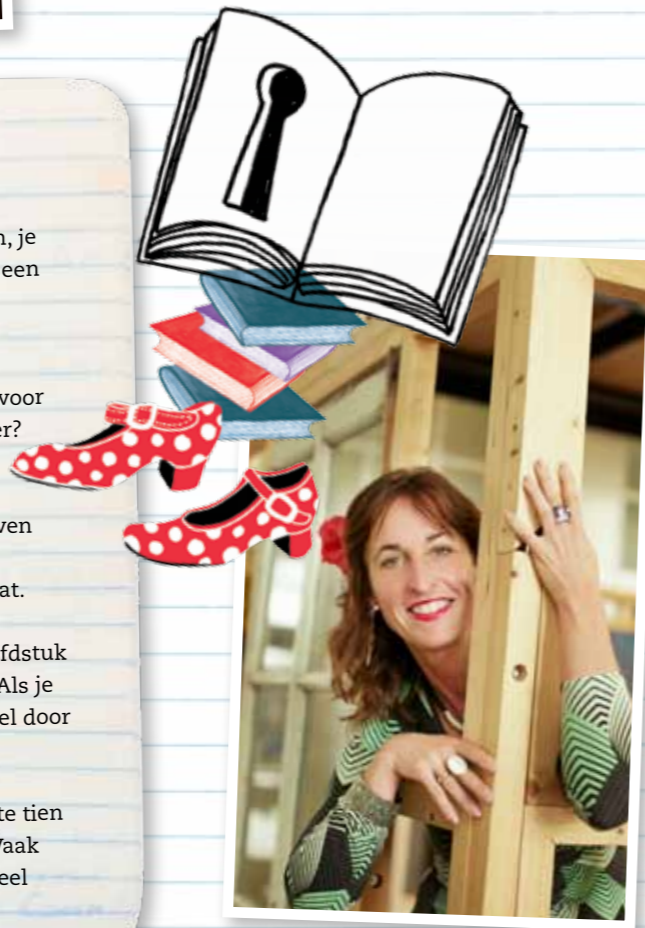 n, je
een
voor
er?
ven
at.
fdstuk
Als je
el door
te tien
Vaak
eel